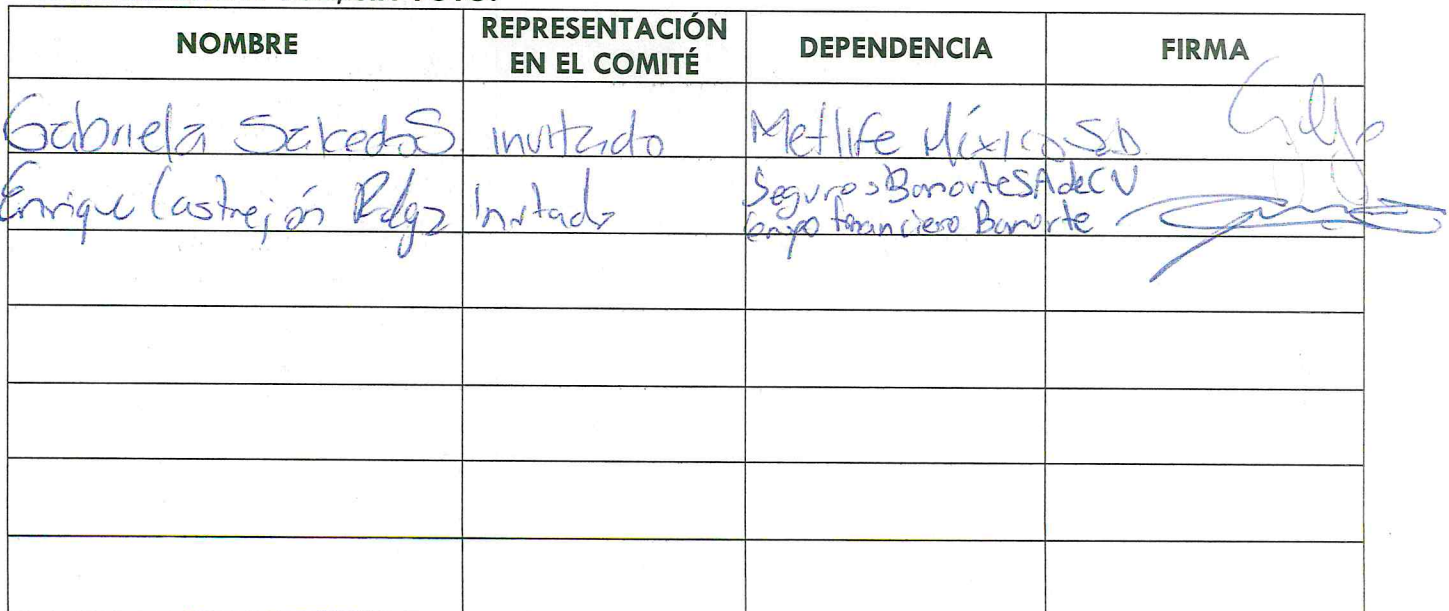 VOTO.
NOMBRE
REPRESENTACIÓN
EN EL COMITÉ
DEPENDENCIA
FIRMA
Gabriela Salcedo S invitado Metlife México SA
Enrique Castrejón Rdgz Invitado Seguros Banorte SA de CV
Grupo Financiero Banorte